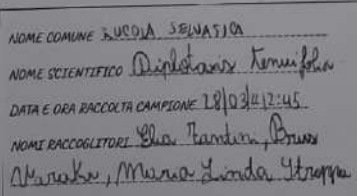 NOME COMUNE RUCOLA SELVATICA
NOME SCIENTIFICO Diplotaxis Tenuifolia
DATA E ORA RACCOLTA CAMPIONE 28/03/ 12:45
NOMI RACCOGLITORI Elia Fantini,
Maria Linda